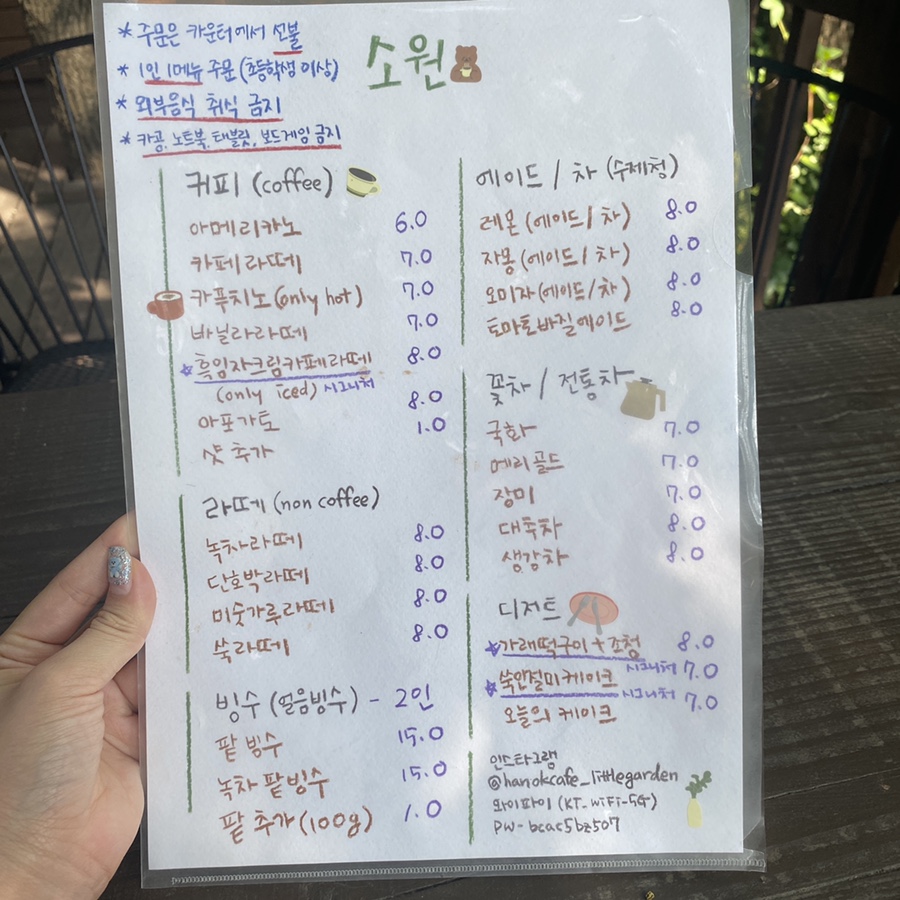 * 주문은 카운터에서 선불
* 1인 1메뉴 주문 (초등학생 이상)
* 외부음식 취식 금지
* 카공, 노트북, 태블릿, 보드게임 금지
소원
커피 (coffee)
아메리카노 6.0
카페라떼 7.0
카푸치노 (only hot) 7.0
바닐라라떼 7.0
흑임자크림카페라떼 8.0
(only iced) 시그니처
아포가토 8.0
샷 추가 1.0
라떼 (non coffee)
녹차라떼 8.0
단호박라떼 8.0
미숫가루라떼 8.0
쑥라떼 8.0
빙수 (얼음빙수) - 2인
팥 빙수 15.0
녹차 팥빙수 15.0
팥 추가 (100g) 1.0
에이드 / 차 (수제청)
레몬 (에이드 / 차) 8.0
자몽 (에이드 / 차) 8.0
오미자 (에이드 / 차) 8.0
토마토바질에이드 8.0
꽃차 / 전통차
국화 7.0
메리골드 7.0
장미 7.0
대추차 8.0
생강차 8.0
디저트
가래떡구이 + 조청 8.0
시그니처
쑥인절미케이크 7.0
시그니처
오늘의 케이크 7.0
인스타그램
@hanokcafe_littlegarden
와이파이 (KT_WiFi-5G)
PW- bcac5bz507